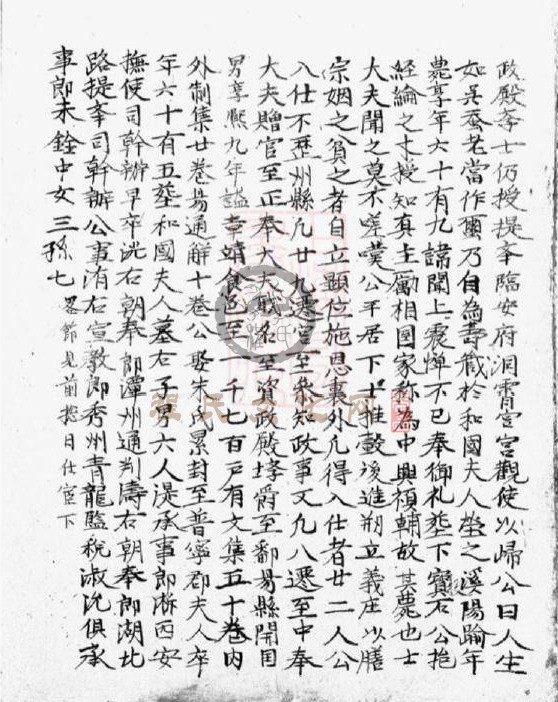 政殿孝士仍授提孝臨安府洞霄宮宮觀使以歸公曰人生
如吳蚕老當作璽乃自為壽藏於和國夫人塋之溪陽踰年
薨享年六十有九訃聞上震悼不已奉御礼塟下寶石公抱
經綸之才授知真主厲相國家称為中興碩輔故其薨也士
大夫聞之莫不嗟嘆公平居下士推轂後進剏立義庄以膳
宗姻之貧之者自立顯位施恩裏外凢得入仕者廿二人公
入仕不歷州縣凢廿九遷官至叅知政事又凢八遷至中奉
大夫贈官至正奉大夫職名至資政殿孝爵至鄱昜縣開囯
男享熈九年諡章靖食邑至一千七百戸有文集五十卷内
外制集廿卷昜通解十卷公娶朱氏累封至普寧郡夫人卒
年六十有五塟和國夫人墓左子男六人湜承事郎浙西安
撫使司幹辦早卒洸右朝奉郎潭州通判濤右朝奉郎湖北
路提孝司幹辦公事洧右宣教郎秀州青龍監稅淑沇俱承
事郎未銓中女三孫七畧節見前捴目仕宦下